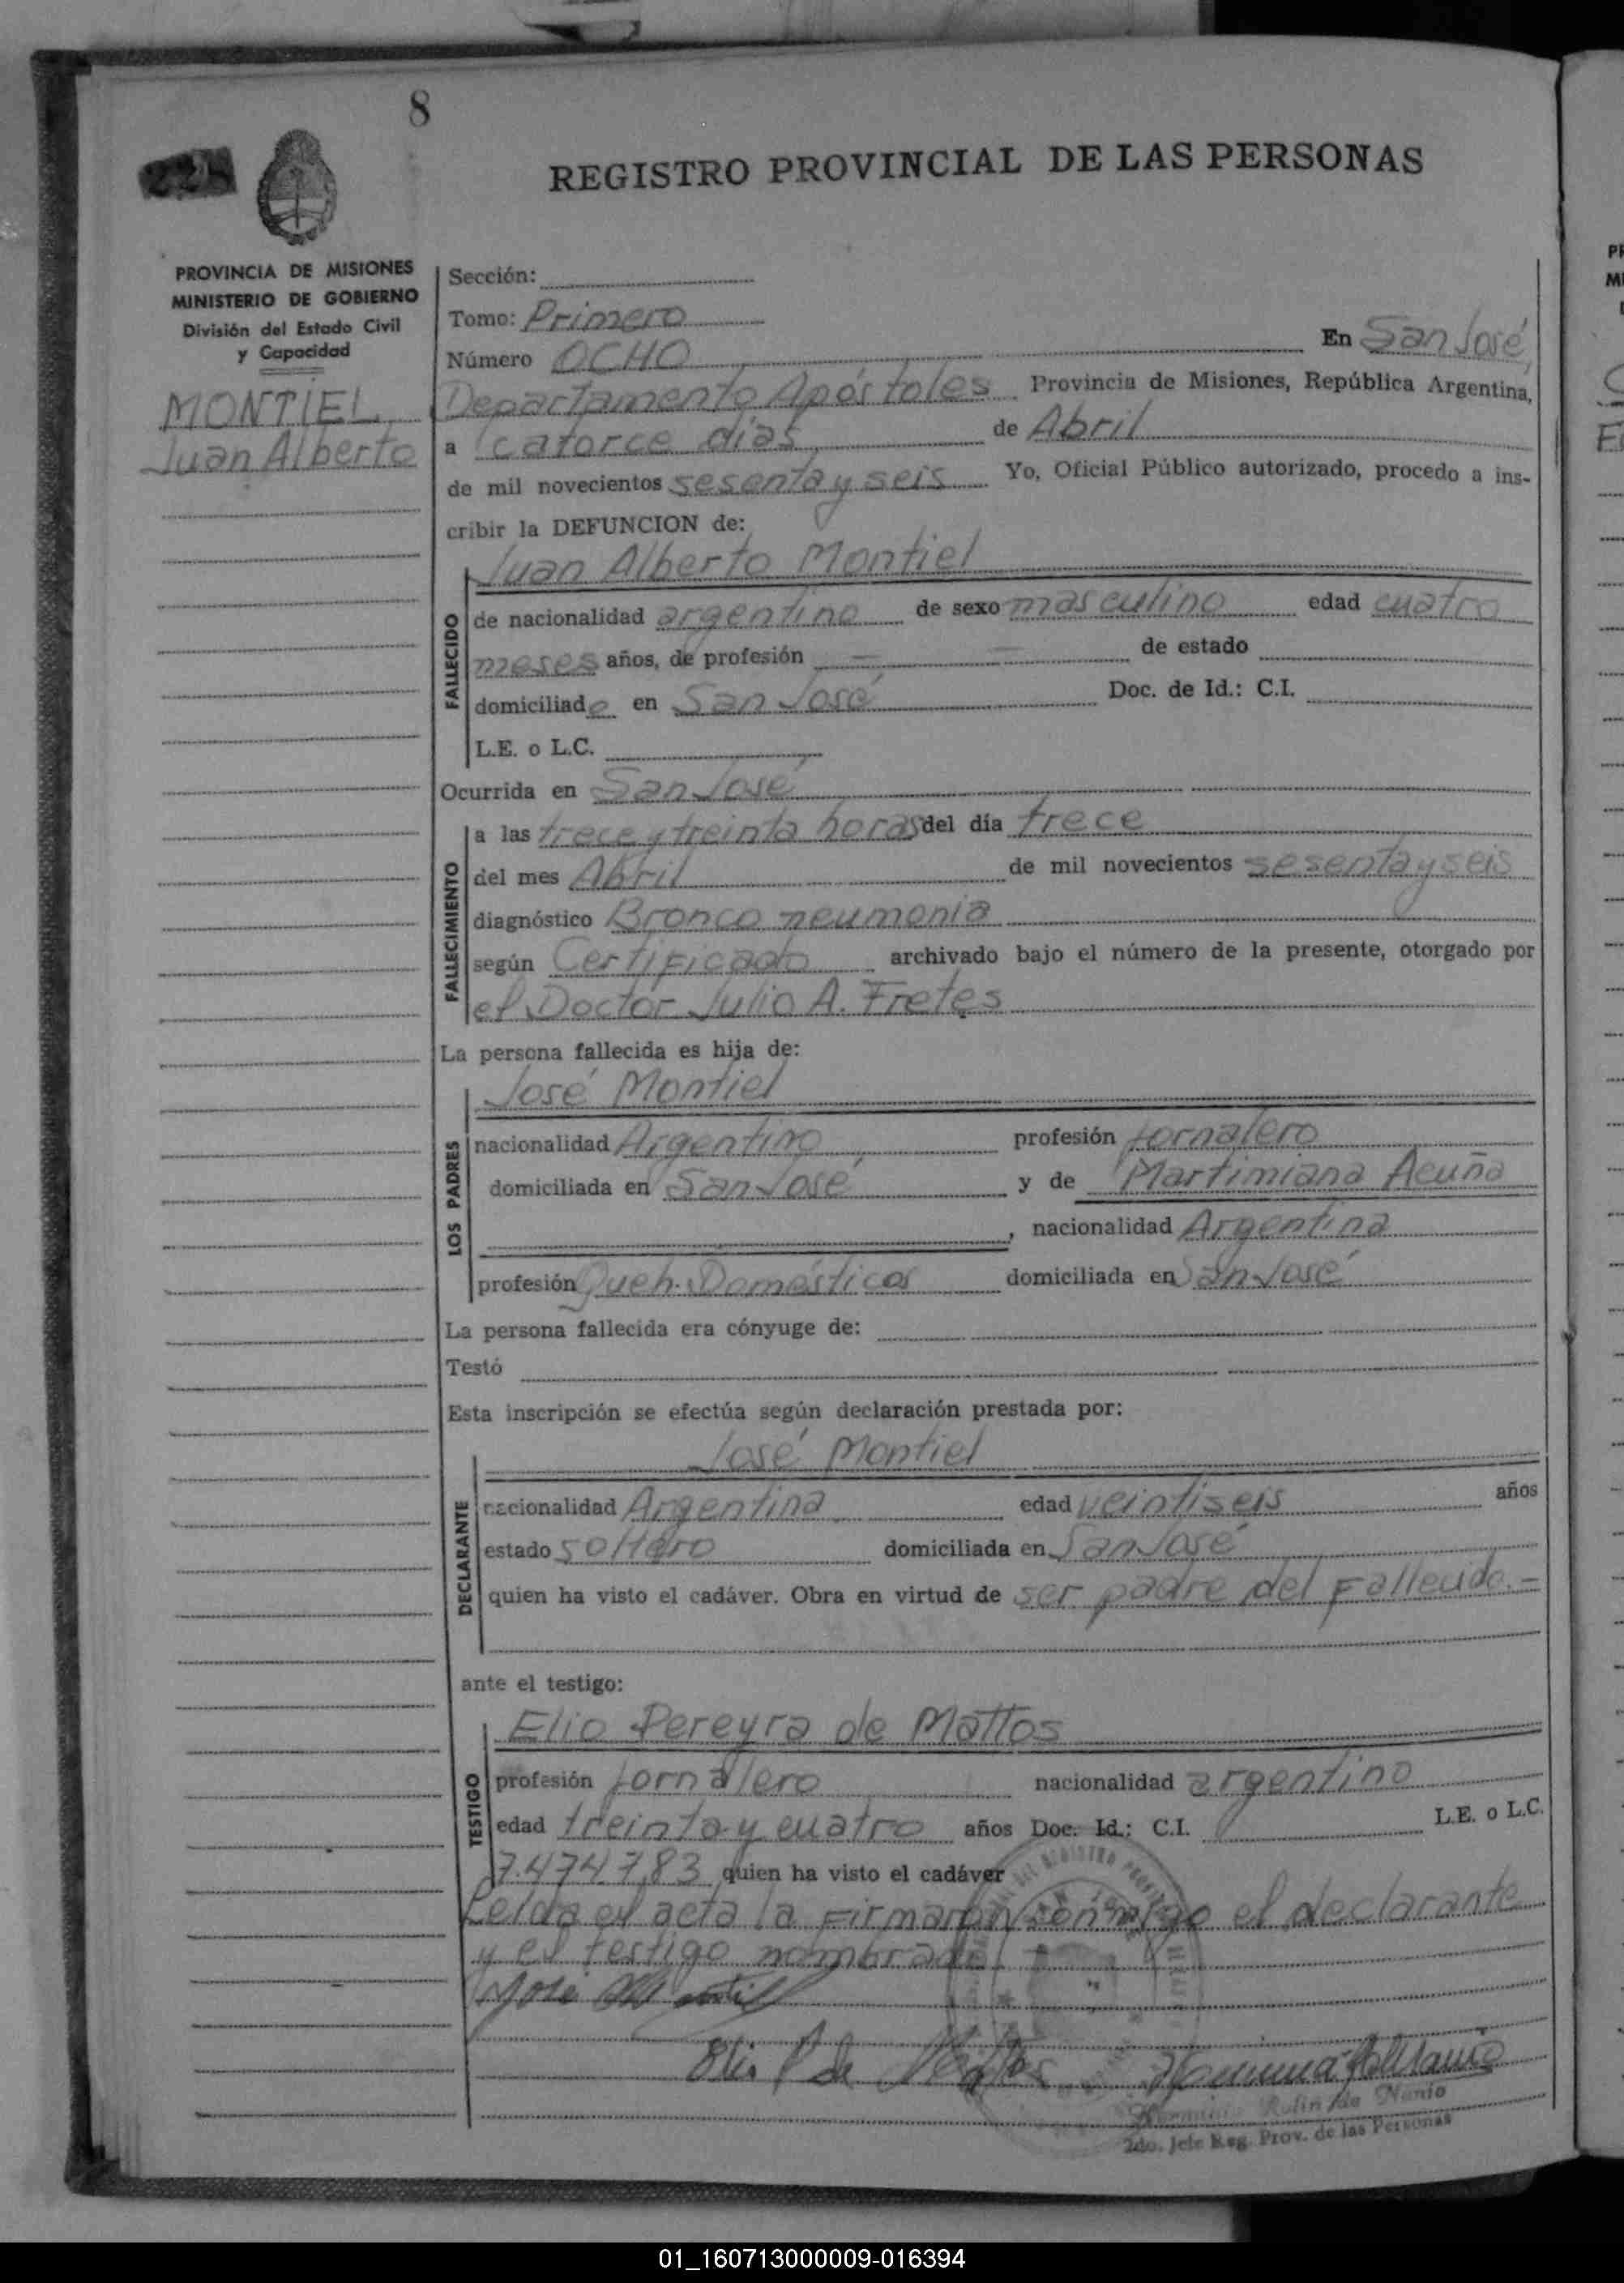 8
228
REGISTRO PROVINCIAL DE LAS PERSONAS
PROVINCIA DE MISIONES
MINISTERIO DE GOBIERNO
División del Estado Civil
y Capacidad
MONTIEL,
Juan Alberto
Sección:
Tomo: Primero
Número OCHO En San José,
Departamento Apóstoles Provincia de Misiones, República Argentina,
a catorce días de Abril
de mil novecientos sesenta y seis Yo, Oficial Público autorizado, procedo a ins-
cribir la DEFUNCION de:
Juan Alberto Montiel
FALLECIDO
de nacionalidad argentino de sexo masculino edad cuatro
meses años, de profesión — — de estado
domiciliado en San José Doc. de Id.: C.I.
L.E. o L.C.
Ocurrida en San José
FALLECIMIENTO
a las trece y treinta horas del día trece
del mes Abril de mil novecientos sesenta y seis
diagnóstico Bronco neumonia
según Certificado archivado bajo el número de la presente, otorgado por
el Doctor Julio A. Fretes
La persona fallecida es hija de:
José Montiel
LOS PADRES
nacionalidad Argentino profesión Jornalero
domiciliada en San José y de Martimiana Acuña
, nacionalidad Argentina
profesión Queh. Domésticos domiciliada en San José
La persona fallecida era cónyuge de:
Testó
Esta inscripción se efectúa según declaración prestada por:
José Montiel
DECLARANTE
nacionalidad Argentina edad veintiseis años
estado soltero domiciliada en San José
quien ha visto el cadáver. Obra en virtud de ser padre del Fallecido.-
ante el testigo:
Elio Pereyra de Mattos
TESTIGO
profesión Jornalero nacionalidad argentino
edad treinta y cuatro años Doc. Id.: C.I. L.E. o L.C.
7.474.783 quien ha visto el cadáver
Leida el acta la Firmaron conmigo el declarante
y el testigo nombrado.
José Montiel
Elio P de Mattos
2do. Jefe Reg. Prov. de las Personas
01_160713000009-016394